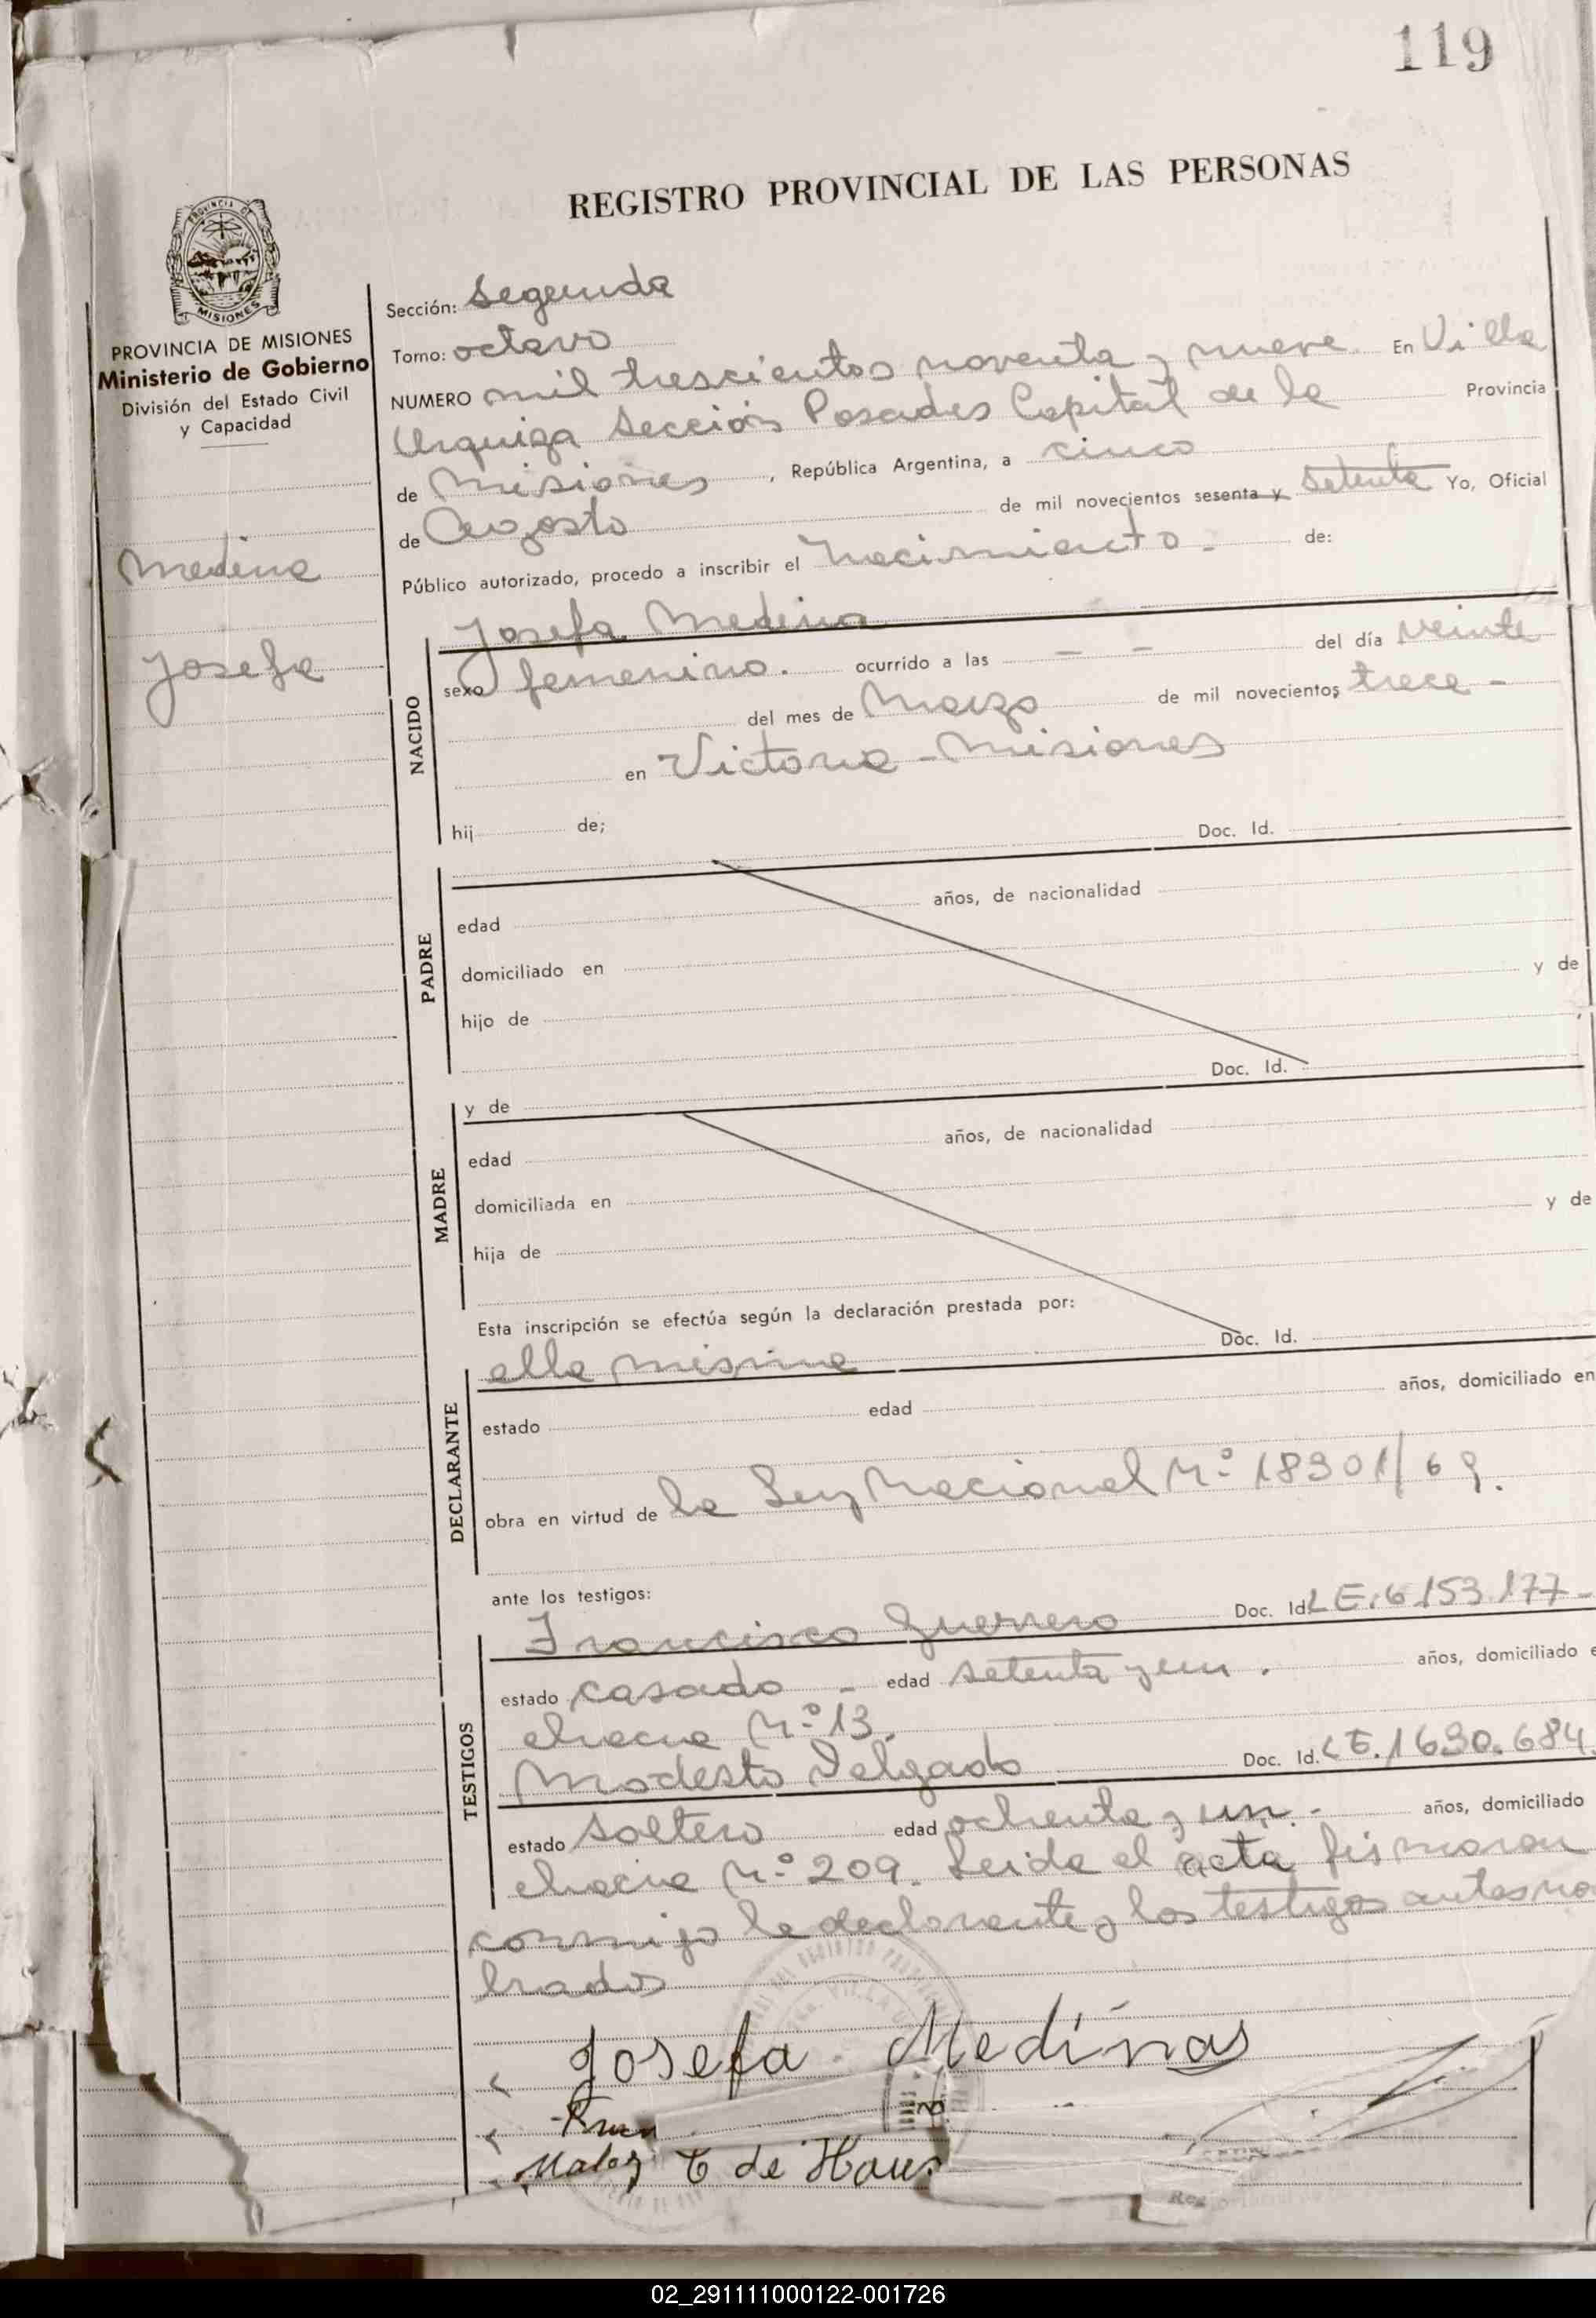 119
REGISTRO PROVINCIAL DE LAS PERSONAS
PROVINCIA DE
MISIONES
PROVINCIA DE MISIONES
Ministerio de Gobierno
División del Estado Civil
y Capacidad
Medina
Josefa
Sección: Segunda
Tomo: octavo
NUMERO mil trescientos noventa y nueve En Villa
Urquiza Sección Posadas Capital de la Provincia
de Misiones, República Argentina, a cinco
de Agosto de mil novecientos sesenta y setenta Yo, Oficial
Público autorizado, procedo a inscribir el nacimiento.- de:
NACIDO
Josefa Medina
sexo femenino. ocurrido a las - - del día veinte
del mes de Marzo de mil novecientos trece -
en Victoria - Misiones
hij de; Doc. Id.
PADRE
edad años, de nacionalidad
domiciliado en
hijo de y de
Doc. Id.
MADRE
y de
edad años, de nacionalidad
domiciliada en
hija de y de
Esta inscripción se efectúa según la declaración prestada por:
Doc. Id.
DECLARANTE
ella misma
estado edad años, domiciliado en
obra en virtud de la Ley Nacional N.º 18301/69.
ante los testigos:
TESTIGOS
Francisco Guerrero Doc. Id. L E. 6.153.177-
estado casado - edad setenta y un. años, domiciliado e
chacra N.º 13.
Modesto Delgado Doc. Id. LE. 1630.684.
estado soltero edad ochenta y un.- años, domiciliado
chacra N.º 209. Leida el acta firmaron
conmigo la declarante y los testigos antesno
brados
Josefa Medinas
de
02_291111000122-001726